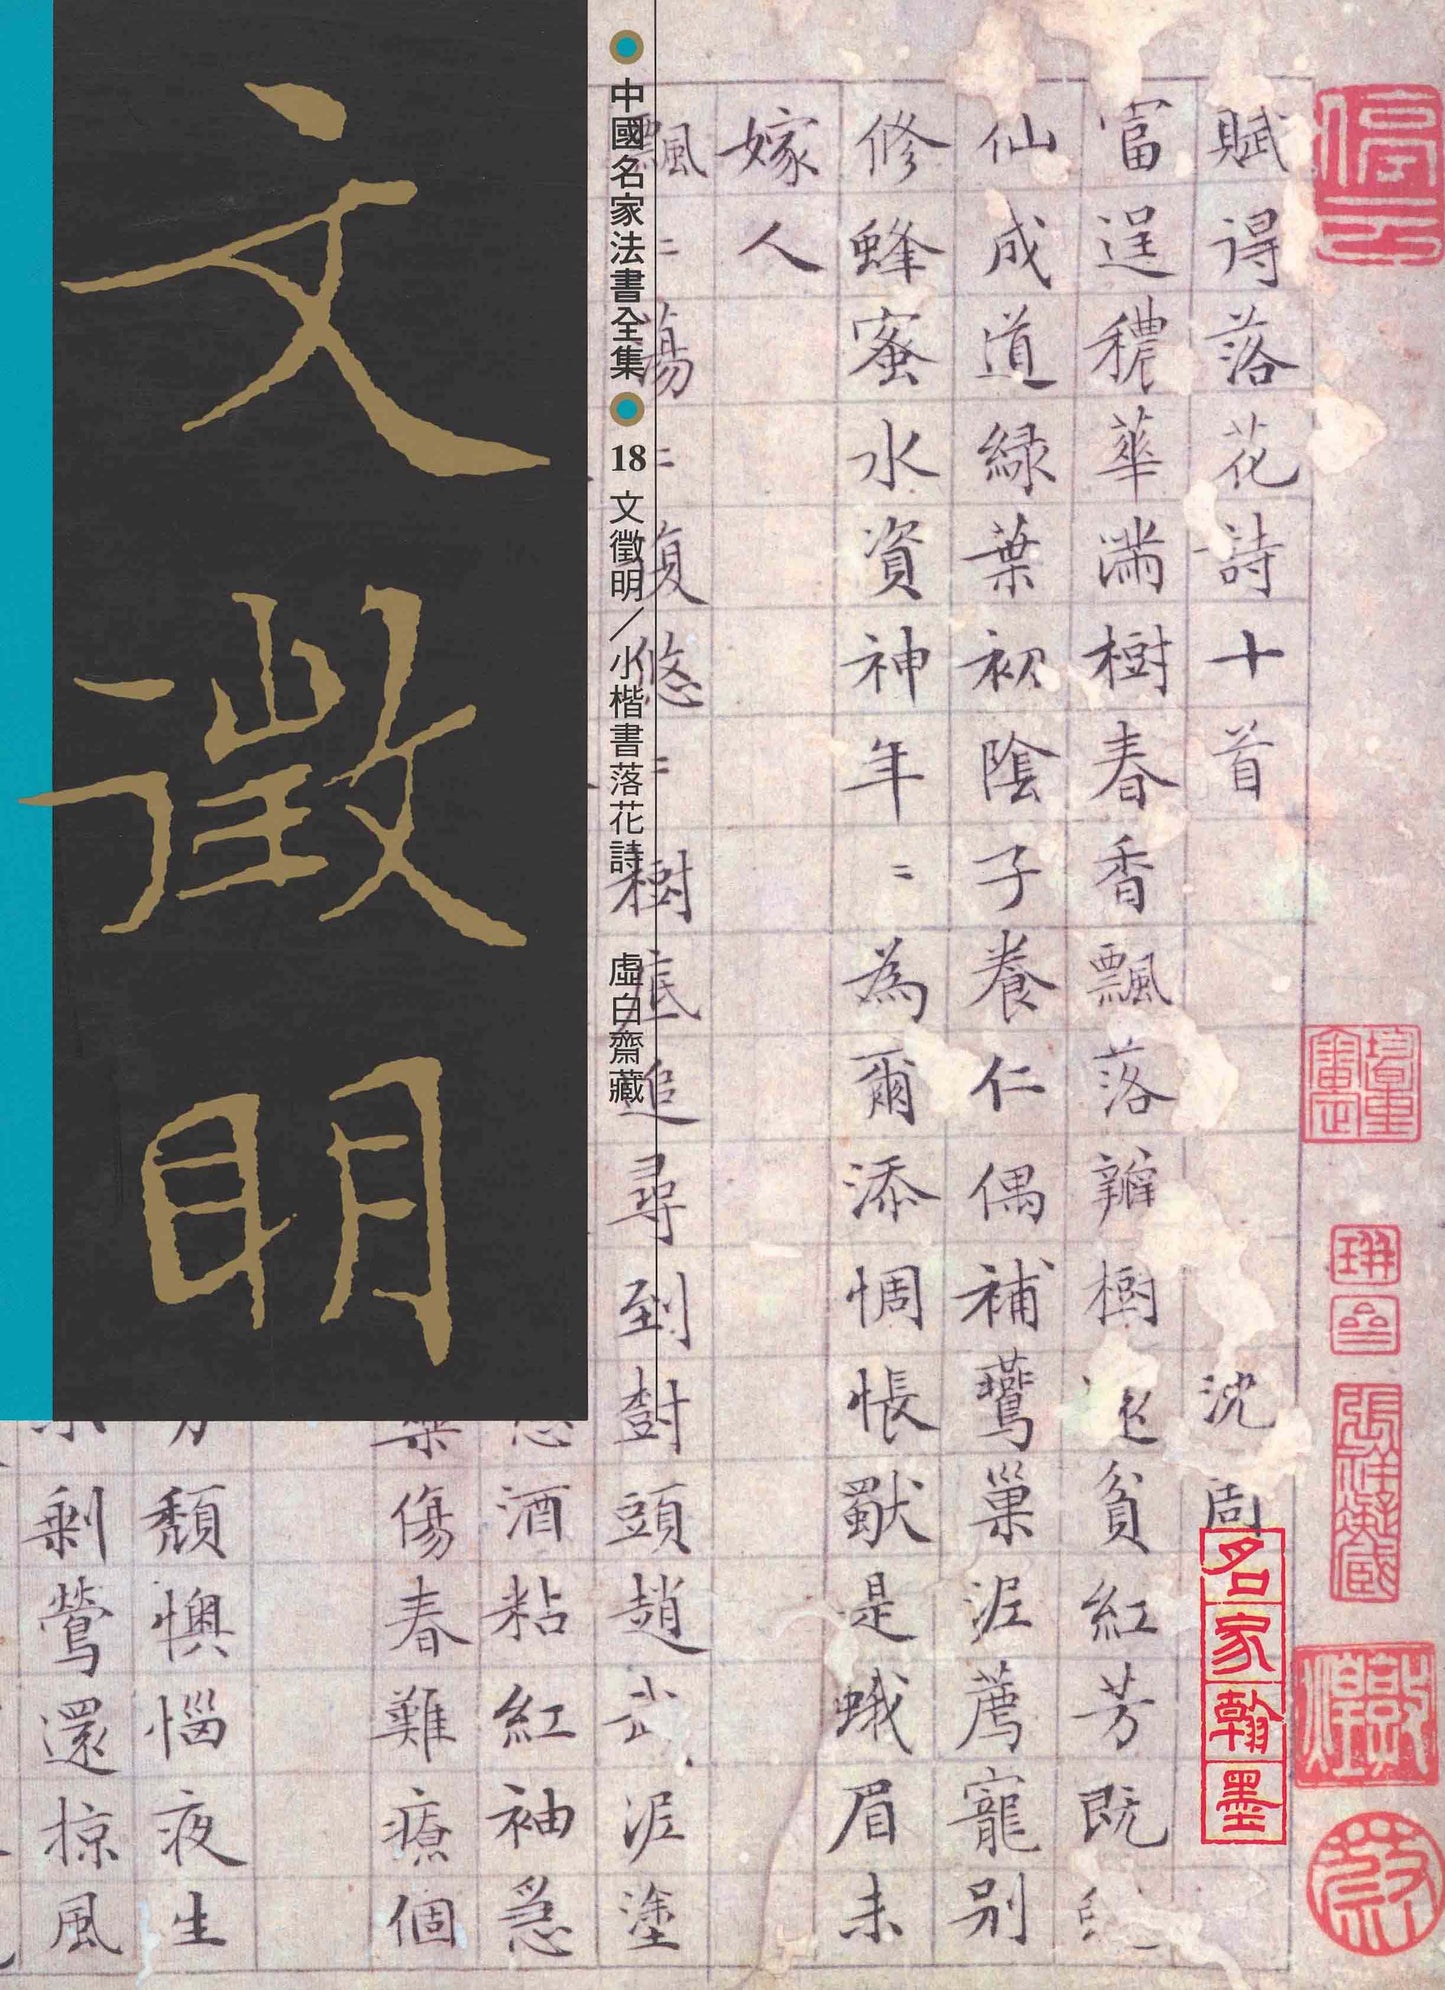 文徵明
中國名家法書全集
18 文徵明／小楷書落花詩 虛白齋藏
賦得落花詩十首 沈周
富逞穠華滿樹春香飄落瓣樹還貧紅芳既
仙成道綠葉初陰子養仁偶補鶯巢泥薦寵別
修蜂蜜水資神年〻為爾添惆悵獸是蛾眉未
嫁人
飄〻蕩〻復悠〻樹底追尋到樹頭趙武泥塗
酒粘紅袖急
藥傷春難療個
頹懊惱夜生
剩鶯還掠風
名家翰墨
張祥凝藏